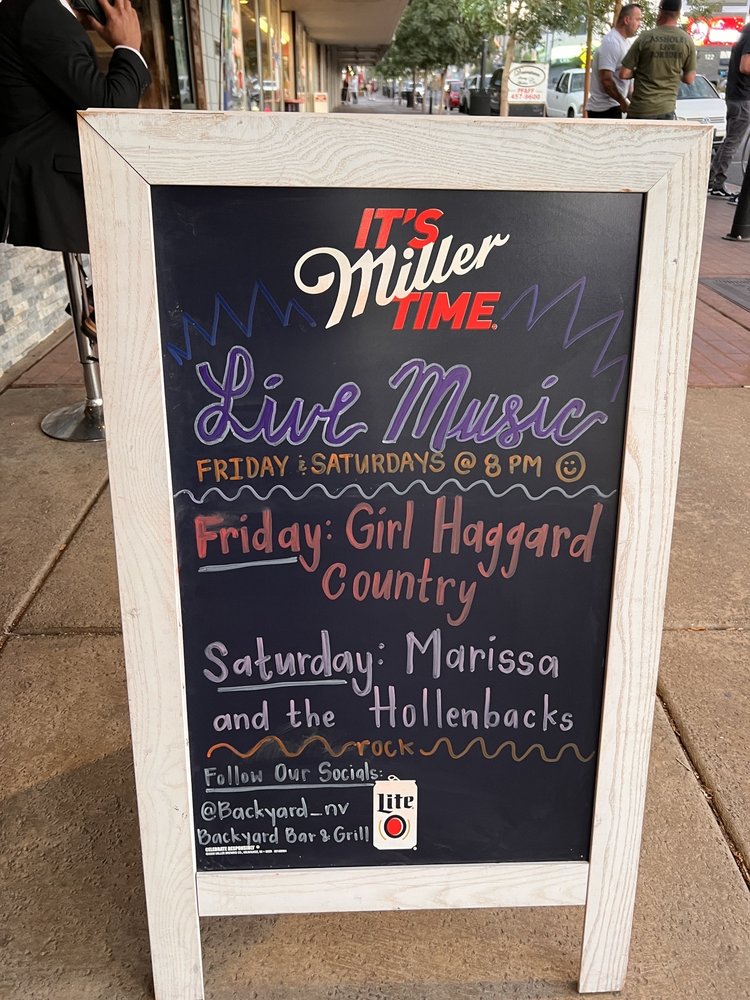 ASSHOLES
LIVE
FOREVER
122
457-8600
IT'S
Miller
TIME
Live Music
FRIDAY & SATURDAYS @ 8 PM
Friday: Girl Haggard
Country
Saturday: Marissa
and the Hollenbacks
rock
Follow Our Socials:
@Backyard_nv
Backyard Bar & Grill
Lite
CELEBRATE RESPONSIBLY